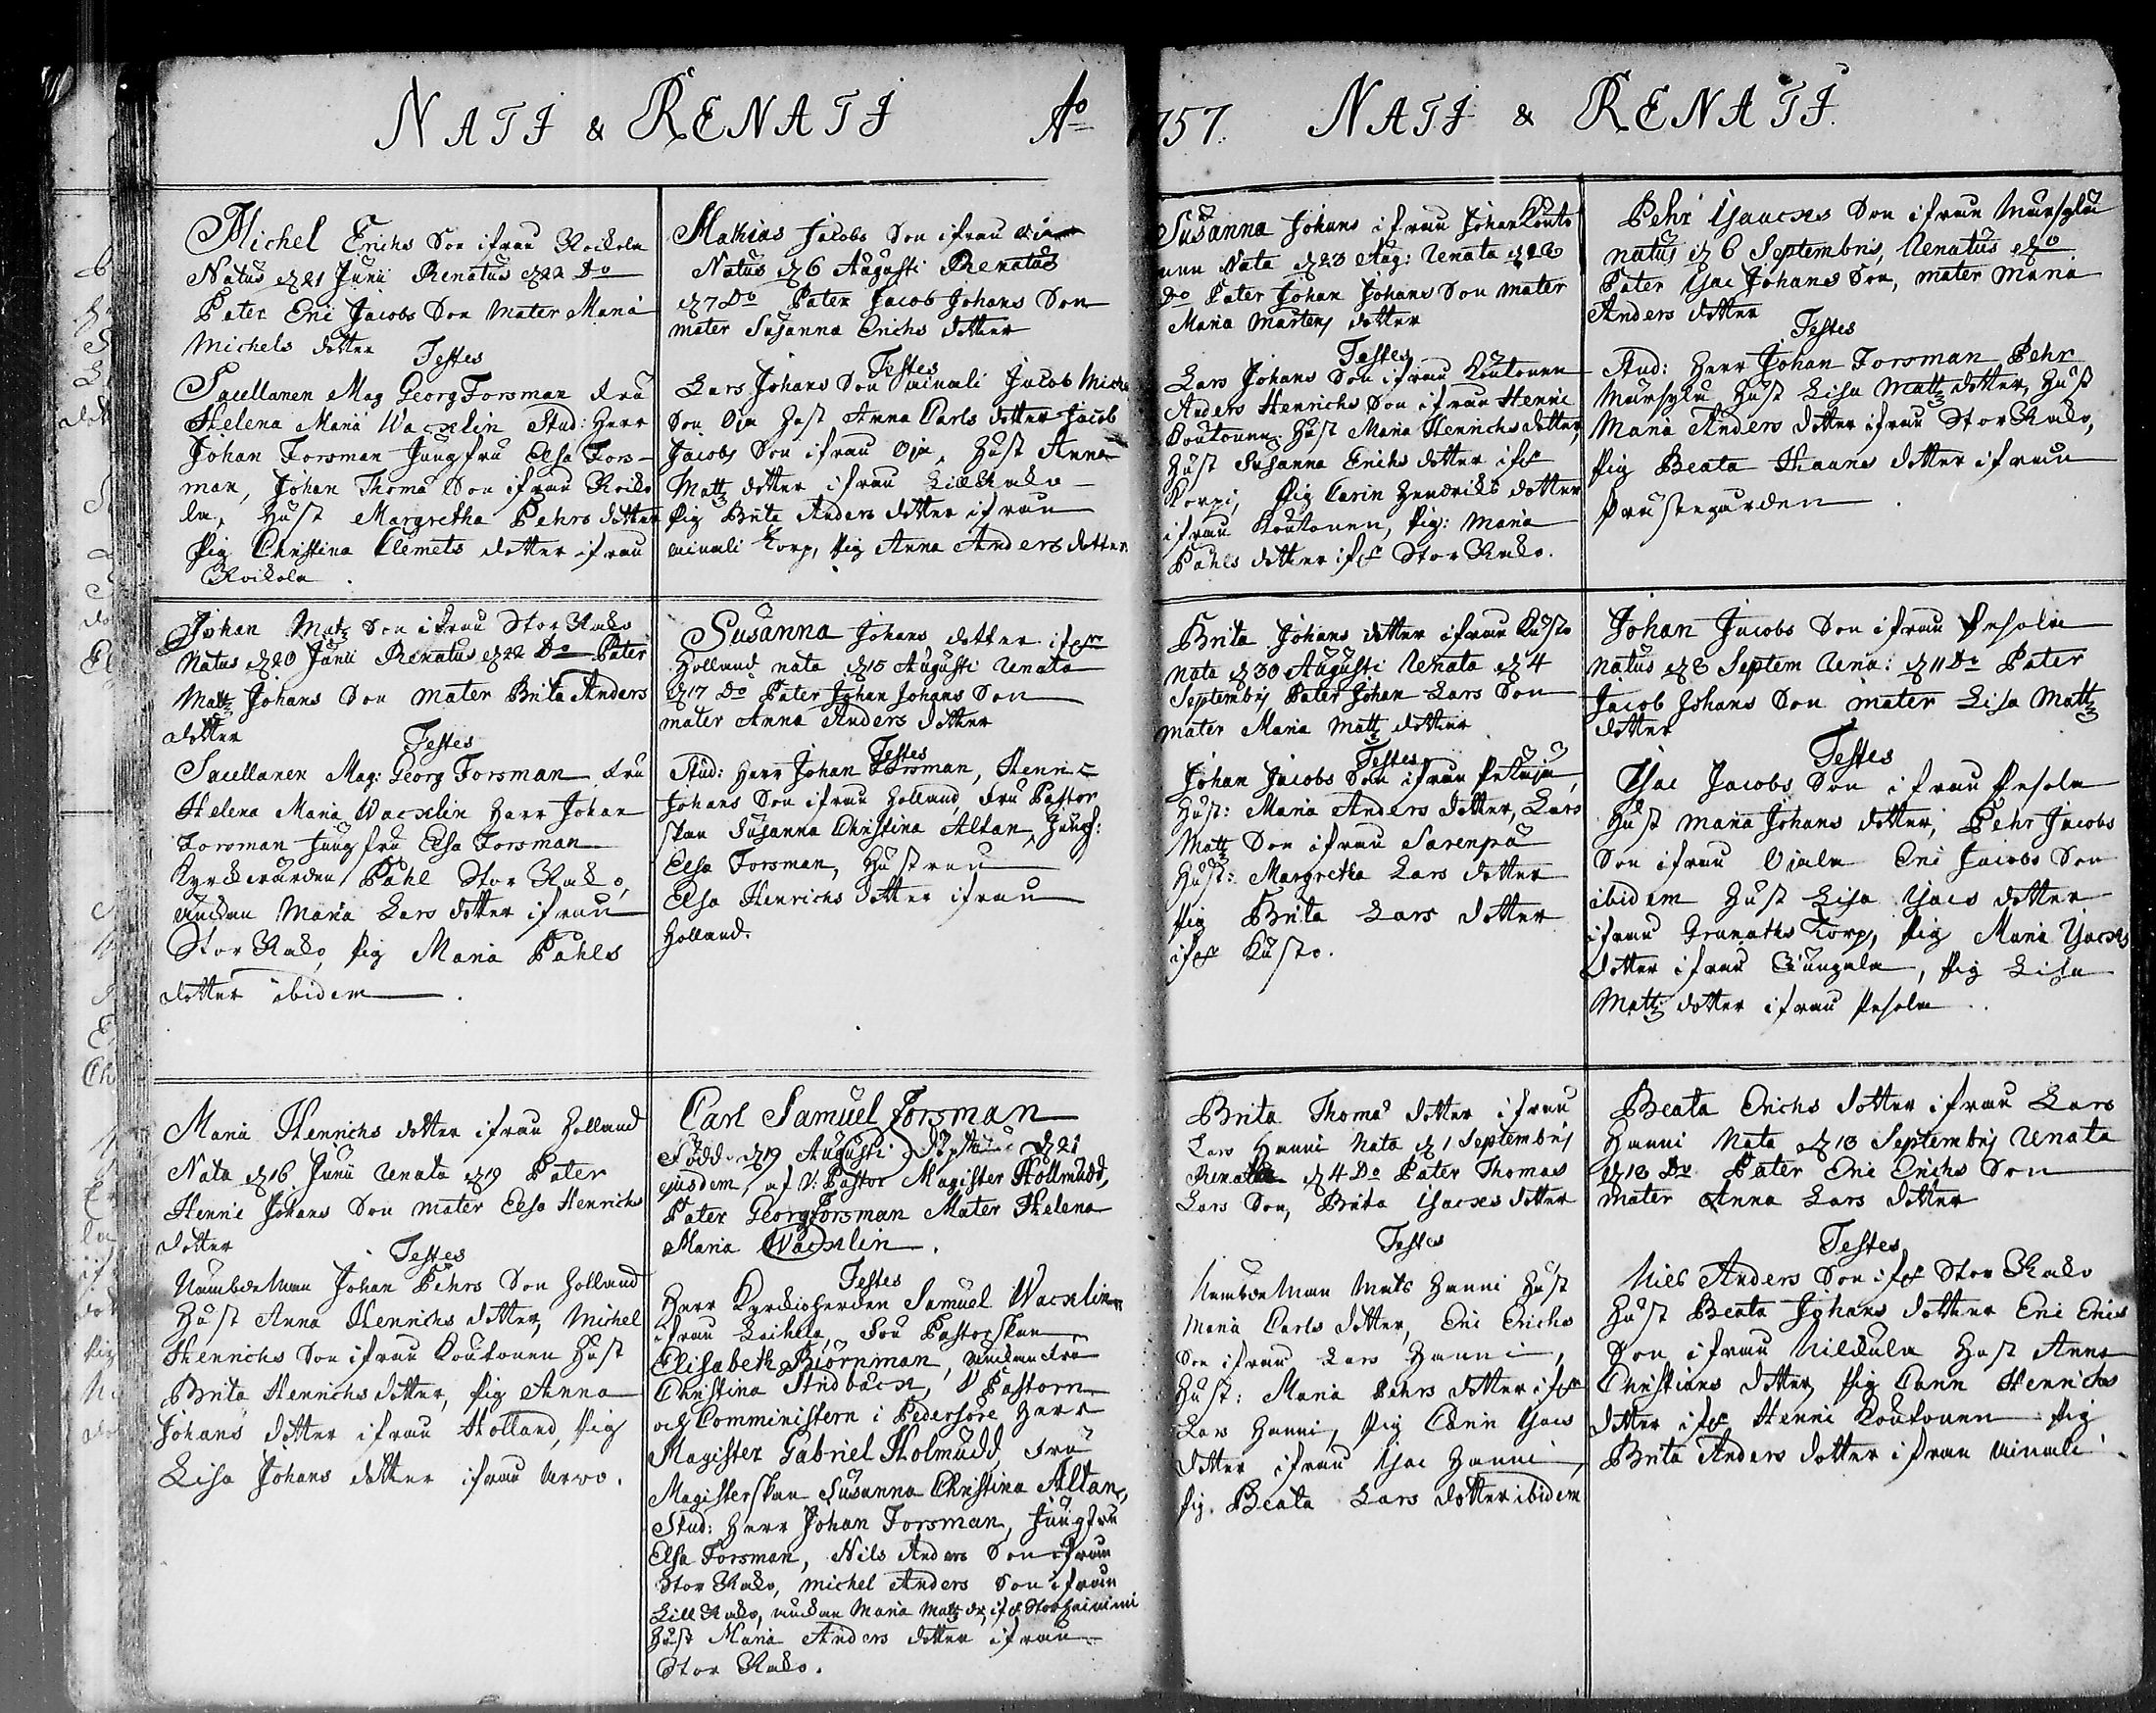 NATI & RENATI Ao
Michel Erichs Son ifrån Roikola
Natus d 21 Junii Renatus d 22 Do
Pater Eric Jacobs Son Mater Maria
Michels dotter
Testes
Sacellanen Mag Georg Forsman Fru
Helena Maria Wacklin Stud: Herr
Johan Forsman Jungfru Elsa Fors-
man, Johan Thoma Son ifrån Roiko
la, Hust Margretha Pehrs dotter
Pig Christina Clemets dotter ifrån
Roikola
Johan Matz Son ifrån Stor Rako
Natus d 20 Junii Renatus d 22 Do Pater
Matz Johans Son Mater Brita Anders
dotter
Testes
Sacellanen Mag: Georg Forsman Fru
Helena Maria Wacklin Herr Johan
Forsman Jungfru Elsa Forsman
Kyrckevärden Påhl Stor Rako,
Änckan Maria Lars dotter ifrån
Stor Rako, Pig Maria Påhls
dotter ibidem
Maria Henrichs dotter ifrån Holland
Nata d 16 Junii Renata d 19 Pater
Henric Johans Son mater Elsa Henrichs
dotter
Testes
Nämbdeman Johan Pehrs Son Holland
Hust Anna Henrichs dotter, Michel
Henrichs Son ifrån Koutonen Hust
Brita Henrichs dotter, Pig Anna
Johans dotter ifrån Holland, Pig
Lisa Johans dotter ifrån Arvo.
Mathias Jacobs Son ifrån
Natus d 6 Augusti Renatus
d 7 Do Pater Jacob Johans Son
mater Susanna Erichs dotter
Testes
Lars Johans Son Ainali Jacob Michs
Son Oja Hust Anna Carls dotter Jacob
Jacobs Son ifrån Oja, Hust Anna
Matz dotter ifrån Lill Rako
Pig Brita Anders dotter ifrån
Ainali Torp, Pig Anna Anders dotter
Susanna Johans dotter ifrån
Holland nata d 15 Augusti Renata
d 17 Do Pater Johan Johans Son
mater Anna Anders dotter
Testes
Stud: Herr Johan Forsman, Henric
Johans Son ifrån Holland, Fru Pastor
skan Susanna Christina Altan, Jungf:
Elsa Forsman, Hustrun
Elsa Henrichs dotter ifrån
Holland.
Carl Samuel Forsman
Född d 19 Augusti d 21
ejusdem, af V: Pastor Magister Hollmudd,
Pater Georg Forsman Mater Helena
Maria Wacklin.
Testes
Herr Kyrckioherden Samuel Wacklin
ifrån Laihela, Fru Pastorskan
Elisabeth Biörnman, Änckan Fru
Christina Stridbäck, V Pastorn
och Comministern i Pedersöre Herr
Magister Gabriel Holmudd, Fru
Magisterskan Susanna Christina Altan,
Stud: Herr Johan Forsman, Jungfru
Elsa Forsman, Nils Anders Son ifrån
Stor Rako, Michel Anders Son ifrån
Lill Rako, änckan Maria Matz dr,
Hust Maria Anders dotter ifrån
Stor Rako.
757. NATI & RENATI.
Susanna Johans ifrån Johan Kouto
nen Nata d 23 Aug: Renata d 26
Do Pater Johan Johans Son mater
Maria Mårtens dotter
Testes
Lars Johans Son ifrån Koutonen
Anders Henrichs Son ifrån Henric
Koutonen Hust Maria Henrichs dotter,
Hust Susanna Erichs dotter ifr
Korpi, Pig Carin Hendriks dotter
ifrån Koutonen, Pig: Maria
Påhls dotter ifr Stor Rako.
Brita Johans dotter ifrån Kusto
nata d 30 Augusti Renata d 4
Septembris Pater Johan Lars Son
mater Maria Matz dotter
Testes
Johan Jacobs Son ifrån
Hust: Maria Anders dotter, Lars
Matz Son ifrån Sarenpä
Hust: Margretha Lars dotter
Pig Brita Lars dotter
ifr Kusto.
Brita Thomas dotter ifrån
Lars Hanni Nata d 1 Septembris
Renata d 4 Do Pater Thomas
Lars Son, Brita Isacks dotter
Testes
Nämbdeman Mats Hanni Hust
Maria Carls dotter, Eric Erichs
Son ifrån Lars Hanni,
Hust: Maria Pehrs dotter ifr
Lars Hanni, Pig Carin Isacs
dotter ifrån Isac Hanni,
Pig. Beata Lars dotter ibidem
Pehr Isacks Son ifrån Mursula
natus d 6 Septembris, Renatus d Do
Pater Isac Johans Son, mater Maria
Anders dotter
Testes
Stud: Herr Johan Forsman Pehr
Mursula Hust Lisa Matz dotter, Hust
Maria Anders dotter ifrån Stor Rako,
Pig Beata Hanns dotter ifrån
Prästegården
Johan Jacobs Son ifrån Pesola
natus d 8 Septem Rena: d 11 Do Pater
Jacob Johans Son mater Lisa Matz
dotter
Testes
Isac Jacobs Son ifrån Pesola
Hust Maria Johans dotter, Pehr Jacobs
Son ifrån Ojala Eric Jacobs Son
ibidem Hust Lisa Isacs dotter
ifrån Granaths Torp, Pig Maria Isacks
dotter ifrån Liungala, Pig Lisa
Matz dotter ifrån Pesola
Beata Erichs dotter ifrån Lars
Hanni Nata d 13 Septembris Renata
d 18 Do Pater Eric Erichs Son
mater Anna Lars dotter
Testes
Nils Anders Son ifr Stor Rako
Hust Beata Johans dotter Eric Erics
Son ifrån Nickula Hust Anna
Christians dotter, Pig Carin Henrichs
dotter ifr Henric Koutonen Pig
Brita Anders dotter ifrån Ainali